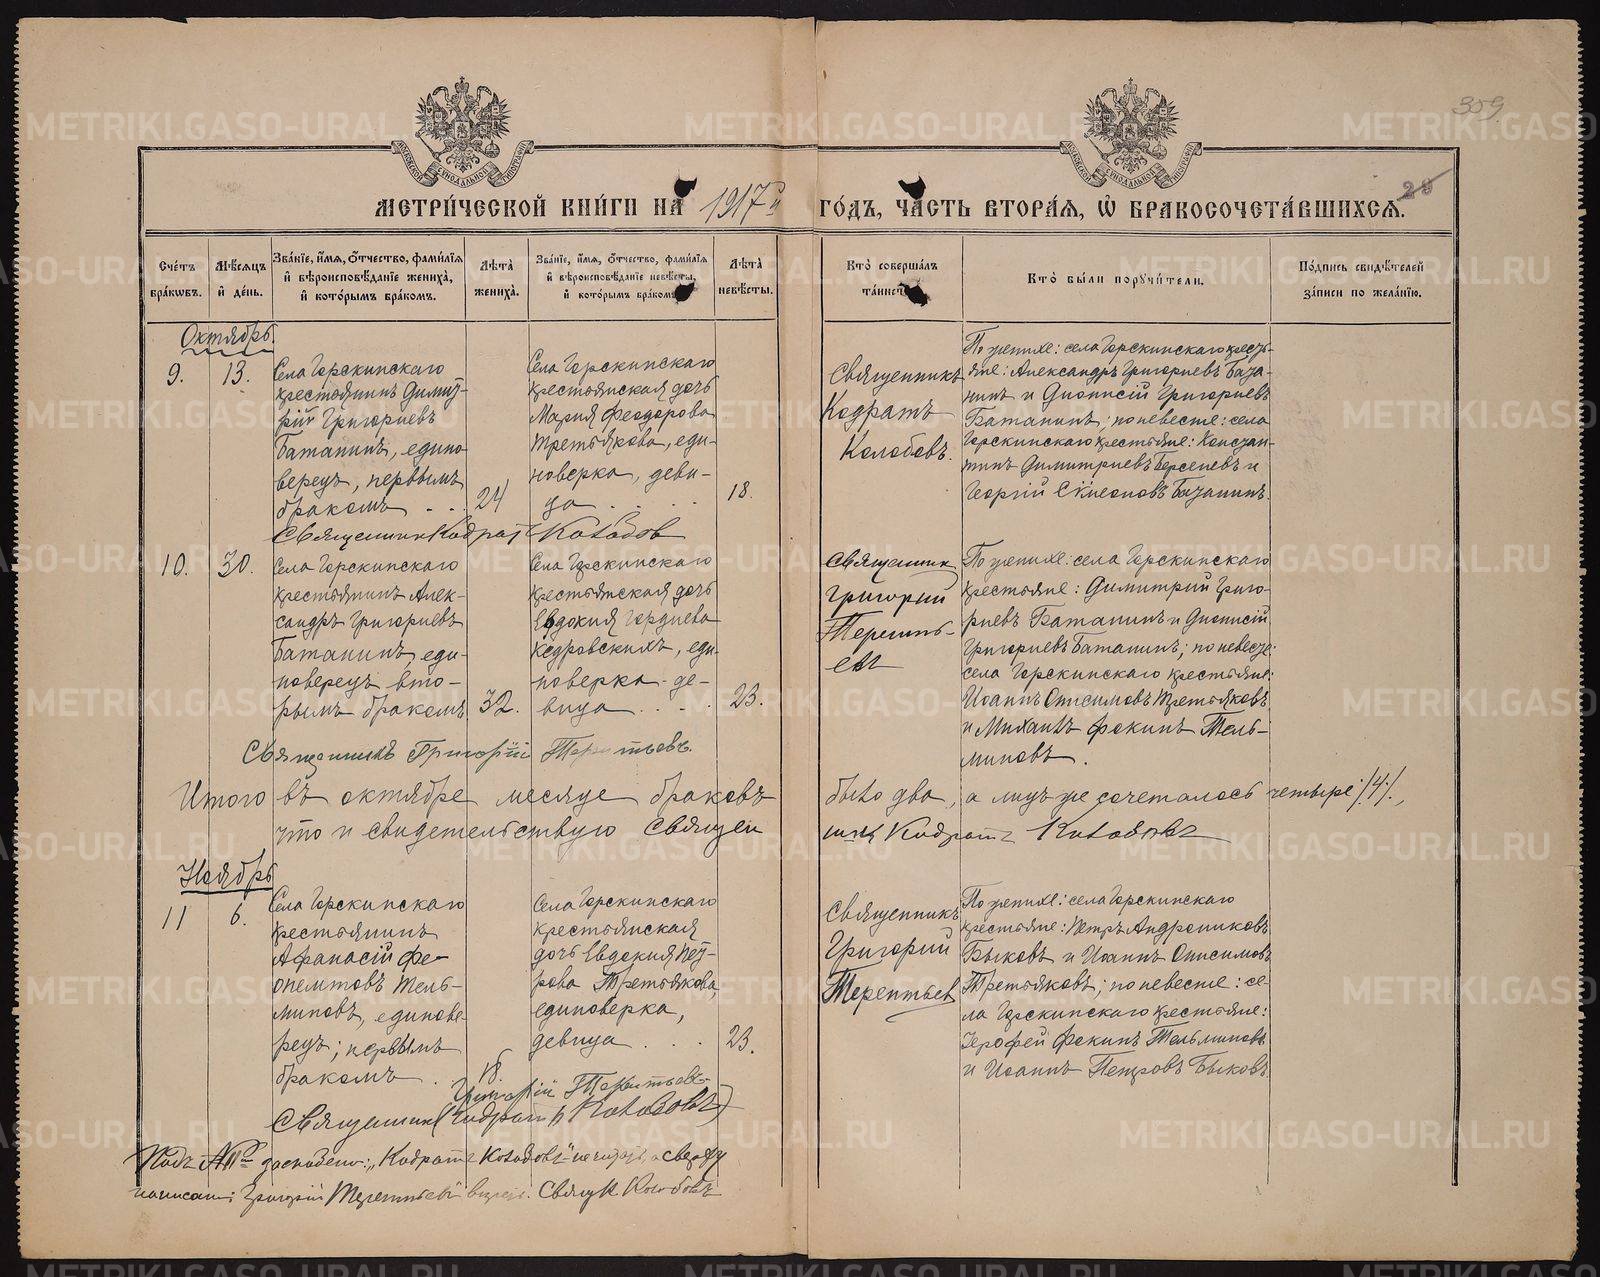 359
28
МЕТРИ́ЧЕСКОЙ КНИ́ГИ НА 1917й ГО́ДЪ, ЧА́СТЬ ВТОРА́Я, Ѡ БРАКОСОЧЕТА́ВШИХСЯ.
Сче́тъ бра́кѡвъ.
Мѣ́сяцъ и де́нь.
Зва́нїе, и́мя, о́тчество, фами́лїя и вѣроисповѣ́данїе жениха̀, и кото́рымъ бра́комъ.
Лѣ́та жениха̀.
Зва́нїе, и́мя, о́тчество, фами́лїя и вѣроисповѣ́данїе невѣ́сты, и кото́рымъ бра́комъ
Лѣ́та невѣ́сты.
Кто̀ соверша́лъ та́инст
Кто̀ бы́ли поручи́тели.
По́дпись свидѣ́телей за́писи по жела́нїю.
Октябрь.
9.
13.
Села Горскинскаго
крестьянинъ Димит-
рій Григорiевъ
Батанинъ, едино
верецъ, первымъ
бракомъ . . .
24
Села Горскинскаго
крестьянская дочь
Мария Феодорова
Третьякова, еди-
новерка, деви-
ца . . . .
18.
Священникъ
Кодратъ
Колобовъ.
По женихе: села Горскинскаго кресть-
яне: Александръ Григорiевъ Бата-
нинъ и Дионисій Григорiевъ
Батанинъ; по невесте: села
Горскинскаго крестьяне: Констан-
тинъ Димитриевъ Берсеневъ и
Георгій Симеоновъ Батанинъ.
Священник Кодрат Колобов
10.
30.
Села Горскинскаго
крестьянинъ Алек-
сандръ Григорiевъ
Батанинъ, еди-
новерецъ вто-
рымъ бракомъ
32.
Села Горскинскаго
крестьянская дочь
Евдокия Гордиева
Кедровскихъ, еди
новерка де-
вица . . . .
23.
Священник
Григорий
Терентьевъ
По женихе: села Горскинскаго
крестьяне: Димитрий Григо-
риевъ Батанинъ и Дионисій
Григориевъ Батанинъ; по невесте:
села Горскинскаго крестьяне:
Иоаннъ Онисимовъ Третьяковъ
и Михаилъ Фокинъ Тель-
миновъ.
Священникъ Григорій Терентьевъ.
Итого въ октябре месяце браковъ было два, а лицъ же сочеталось четыре /4/.,
что и свидетельствую священник Кодратъ Колобовъ
Ноябрь
11
6.
Села Горскинскаго
крестьянинъ
Афанасій Фе-
опемптовъ Тель-
миновъ, единове
рецъ; первымъ
бракомъ .
18.
Села Горскинскаго
крестьянская
дочь Евдокия Пет-
рова Третьякова,
единоверка,
девица . . .
23.
Священникъ
Григорий
Терентьев
По женихе: села Горскинскаго
крестьяне: Петръ Андрониковъ
Быковъ и Иоаннъ Онисимовъ
Третьяковъ; по невесте: се-
ла Горскинскаго крестьяне:
Ерофей Фокинъ Тельминовъ
и Иоаннъ Петровъ Быковъ.
Григорій Терентьевъ
Священник (Кодратъ Колобовъ)
Подъ № 11м заскоблено: „Кодратъ Колобовъ" не читать, а сверху
написано: Григорій Терентьевъ верно. Свящ К Колобовъ
METRIKI.GASO-URAL.RU